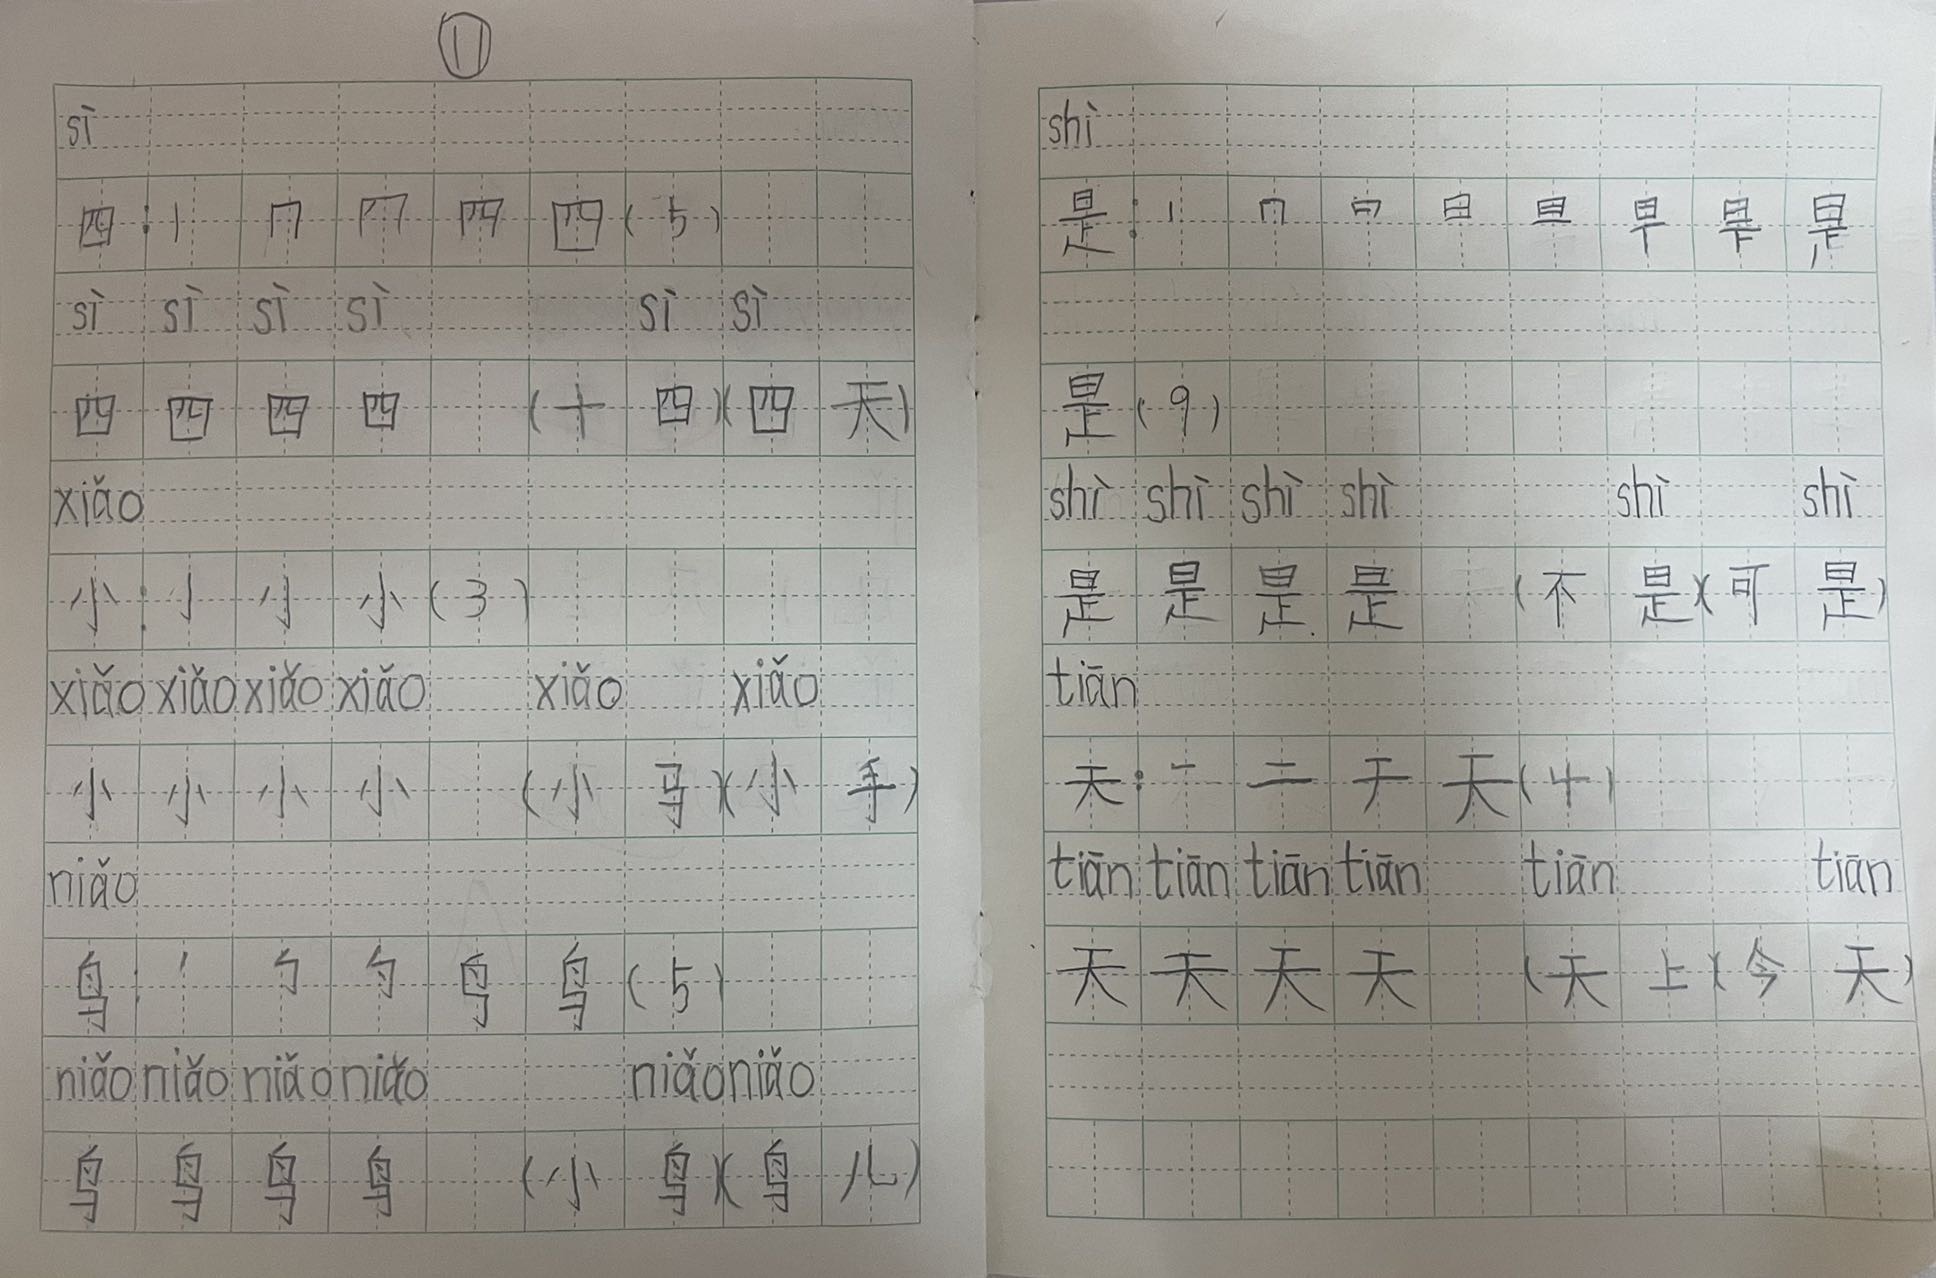 11
sì
四：丨 冂 𱍸 四 四（5）
sì sì sì sì sì sì
四 四 四 四（十四）（四天）
xiǎo
小：亅 小 小（3）
xiǎo xiǎo xiǎo xiǎo xiǎo xiǎo
小 小 小 小（小马）（小手）
niǎo
鸟：丿 鸟 鸟（5）
niǎo niǎo niǎo niǎo niǎo niǎo
鸟 鸟 鸟 鸟（小鸟）（鸟儿）
shì
是：丨 冂 日 日 旦 是
是（9）
shì shì shì shì shì shì
是 是 是 是（不是）（可是）
tiān
天：一 二 于 天（4）
tiān tiān tiān tiān tiān tiān
天 天 天 天（天上）（今天）